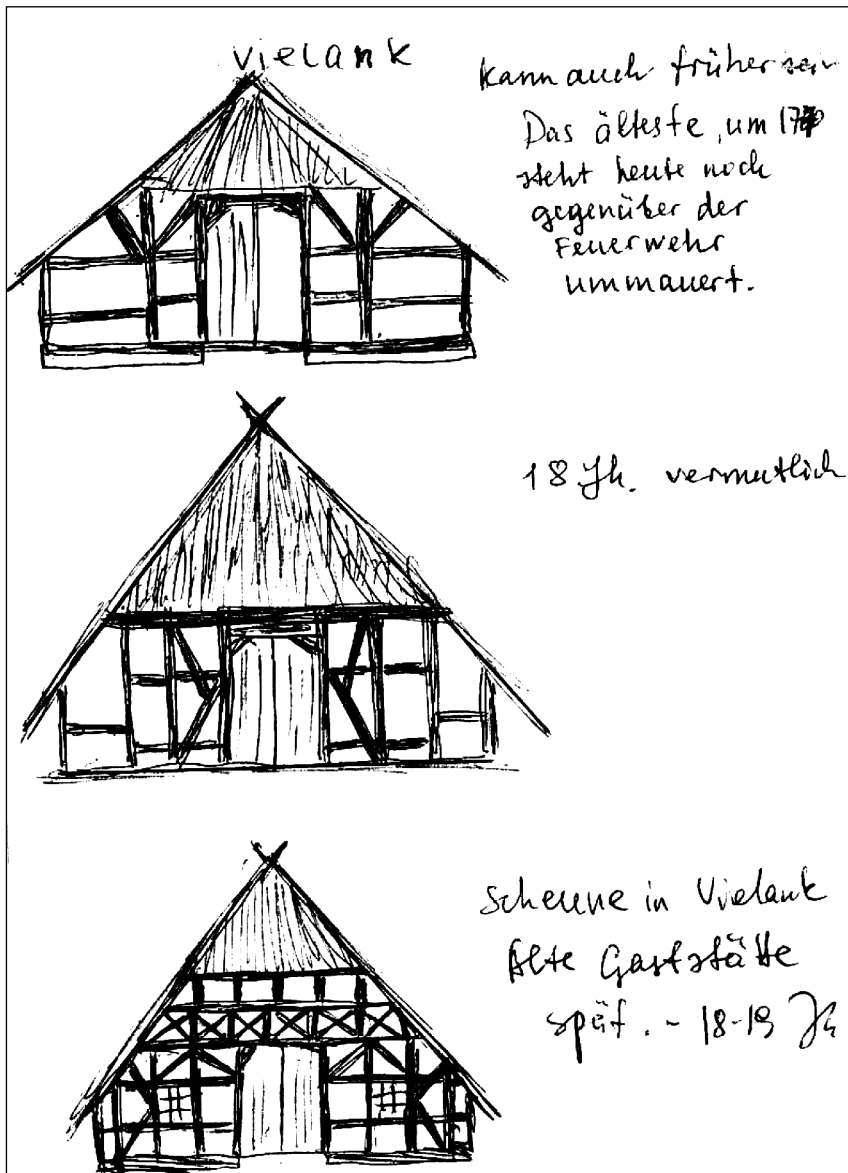 Vielank
kann auch früher sein
Das älteste, um
steht heute noch
gegenüber der
Feuerwehr
ummauert.
18 Jh. vermutlich
Scheune in Vielank
Alte Gaststätte
spät. - 18-19 Jh